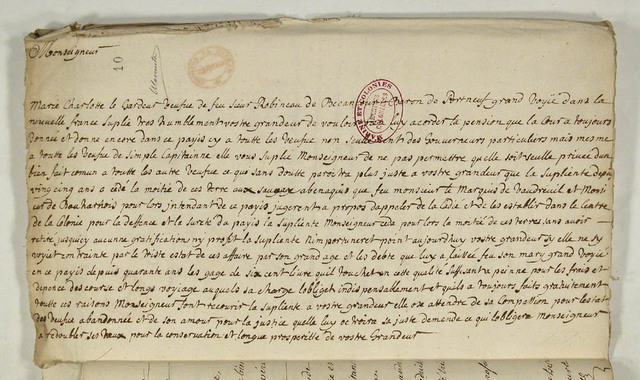 Monseigneur
10
Marie Charlotte le Gardeur veufue de feu sieur Robineau de Becancourt Baron de Portneuf grand Voÿë dans la
nouvelle france Suplie tres humblement vostre grandeur de vouloir luy acorder le pension que la Cour a toujours
donnée et donne encore dans ce payis cy a toutte les veufue non seullement des Gouverneurs particuliers mais mesme
a toutte les veufue de simple Capitainne elle vous suplie Monseigneur de ne pas permettre quelle soit seulle privée dun
bien fait comun a toutte les autre veufue ce que sans doutte paroitra plus juste a vostre grandeur que la Supliente depuis
vingt cinq ans a cédé la moitié de ces terre aux sauvage abenaquis que feu monsieur le Marquis de Vaudreuil et Monsi
eur de Bauharnois pour lors intendant de ce payis jugerent a propos dappeler de la Cadie et de les establir dans le Centre
de la Colonie pour la deffence et la sureté du payis la Supliente Monseigneur ceda pour lors la moitié de ces terres sans avoir
retiré jusquicy aucunne gratification ny profit la Supliente nimportuneret point aujourdhuy vostre grandeur sy elle ne sy
voyiet contrainte par le triste estat de ces affaire par son grand age et les debte que luy a laissée feu son mary grand Voyë
en ce payis depuis quarante ans les gage de six cent livre quil touchet en cette qualité suffisant a peinne pour les frais et
depence des course et longs voyage auquels sa charge lobliget indispensablement et quils a toujours faits gratuitement
toutte ces raisons Monseigneur font recourir la Supliente a vostre grandeur elle ose attendre de sa Compassion pour lestat
des veufue abandonnée et de son amour pour la justice quelle luy octroira sa juste demande ce qui lobligera Monseigneur
a redoubler ses vœux pour la conservation et longue prosperité de vostre Grandeur